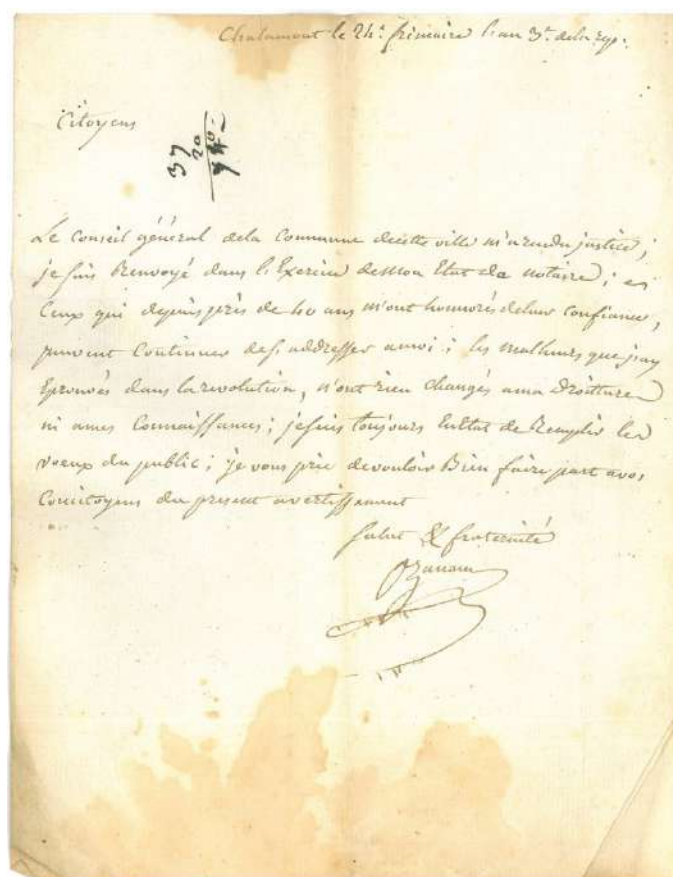 Chalamont le 24e. frimaire l'an 3e. de la rep.
Citoyens
37
20
740
Le Conseil général dela Commune decette ville m'a rendu justice;
je suis Renvoyé dans l'Exercice demon Etat de notaire; et
Ceux qui depuis près de 40 ans m'ont honorés deleur confiance,
peuvent Continuer des'addresser amoi; les malheurs que j'ay
Eprouvés dans la revolution, n'ont rien changés ama Droitture
ni ames Connaissances; je suis toujours En Etat de Remplir les
voeux du public; je vous prie devouloir Bien faire part avos
Concitoyens du present avertissement
Salut & fraternité
Ozanam